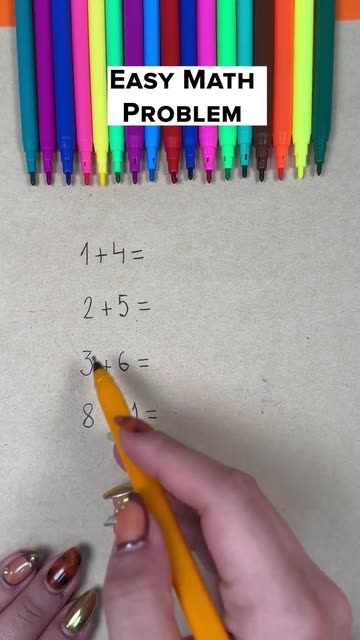 EASY MATH
PROBLEM
1+4=
2+5=
3+6=
8 1=